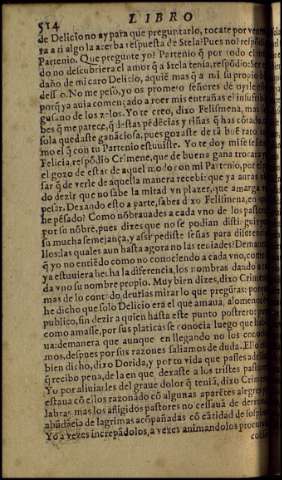 514 LIBRO
de Delicio no ay para que preguntarlo, tocate por
ya a ti algo la acerba respuesta de Stela? Pues no? respõdio
Partenio. Que pregunte yo? Partenio q̃ por todo el
do no descubriera el amor q̃ a Stela tenia, respõdio: se en
daño de mi caro Delicio, aquié mas q̃ a mi su propio
desseo. No me peso, yo os prometo señores de oylle
porq̃ ya auia començado a roer mis entrañas el insufrib
gusano de los zelos. Yo te creo, dixo Felismena, sa
bes q̃ me parece, q̃ destas pdecias y riñas q̃ has cõtado,
sola quedaste ganaciosa, pues gozaste de tã buẽ rato
mo el q̃ con tu Partenio estuuiste. Yo te doy mi fe
Felicia, respõdio Crimene, que de buena gana trocara
el gozo de estar de aquel modo con mi Partenio, por el
sar q̃ de verle de aquella manera recebi: que ya auras
do dezir que no sabe la mitad vn plazer, que amarga vn
pesar. Dexando esto a parte, sabes dixo Felismena, en que
he pẽsado? Como nõbrauades a cada vno de los pastores
por su nõbre, pues dizes que no se podian distinguir
su mucha semejança, y assi pediste señas para diferen
llos: las quales aun hasta agora no las teniades? Demanera
q̃ yo no entiẽdo como no conociendo a cada vno, como
ya estuuiera hecha la diferencia, los nombras dando a
da vno su nombre proprio. Muy bien dizes, dixo Crimene
mas de lo contado, deurias mirar lo que pregũtas: porque
he dicho que solo Delicio era el que amaua, alomenos
publico, sin dezir a quien hasta este punto postrero:
como amasse, por sus platicas se conocia luego que
ua: demanera que aunque en llegando no los
mos, despues por sus razones saliamos de duda. Ello
bien dicho, dixo Dorida, y por tu vida que passes adelante
q̃ recibo pena, de la en que dexaste a los tristes pastores.
Yo por aliuiarles del graue dolor q̃ teniã, dixo Crimene
estaua cõ ellos razonãdo cõ algunas aparẽtes alegres
labras: mas los afligidos pastores no cessauã de derramar
abũdãcia de lagrimas acõpañadas cõ cãtidad de sospiros.
Yo a vezes increpãdolos, a vezes animandolos procuraua